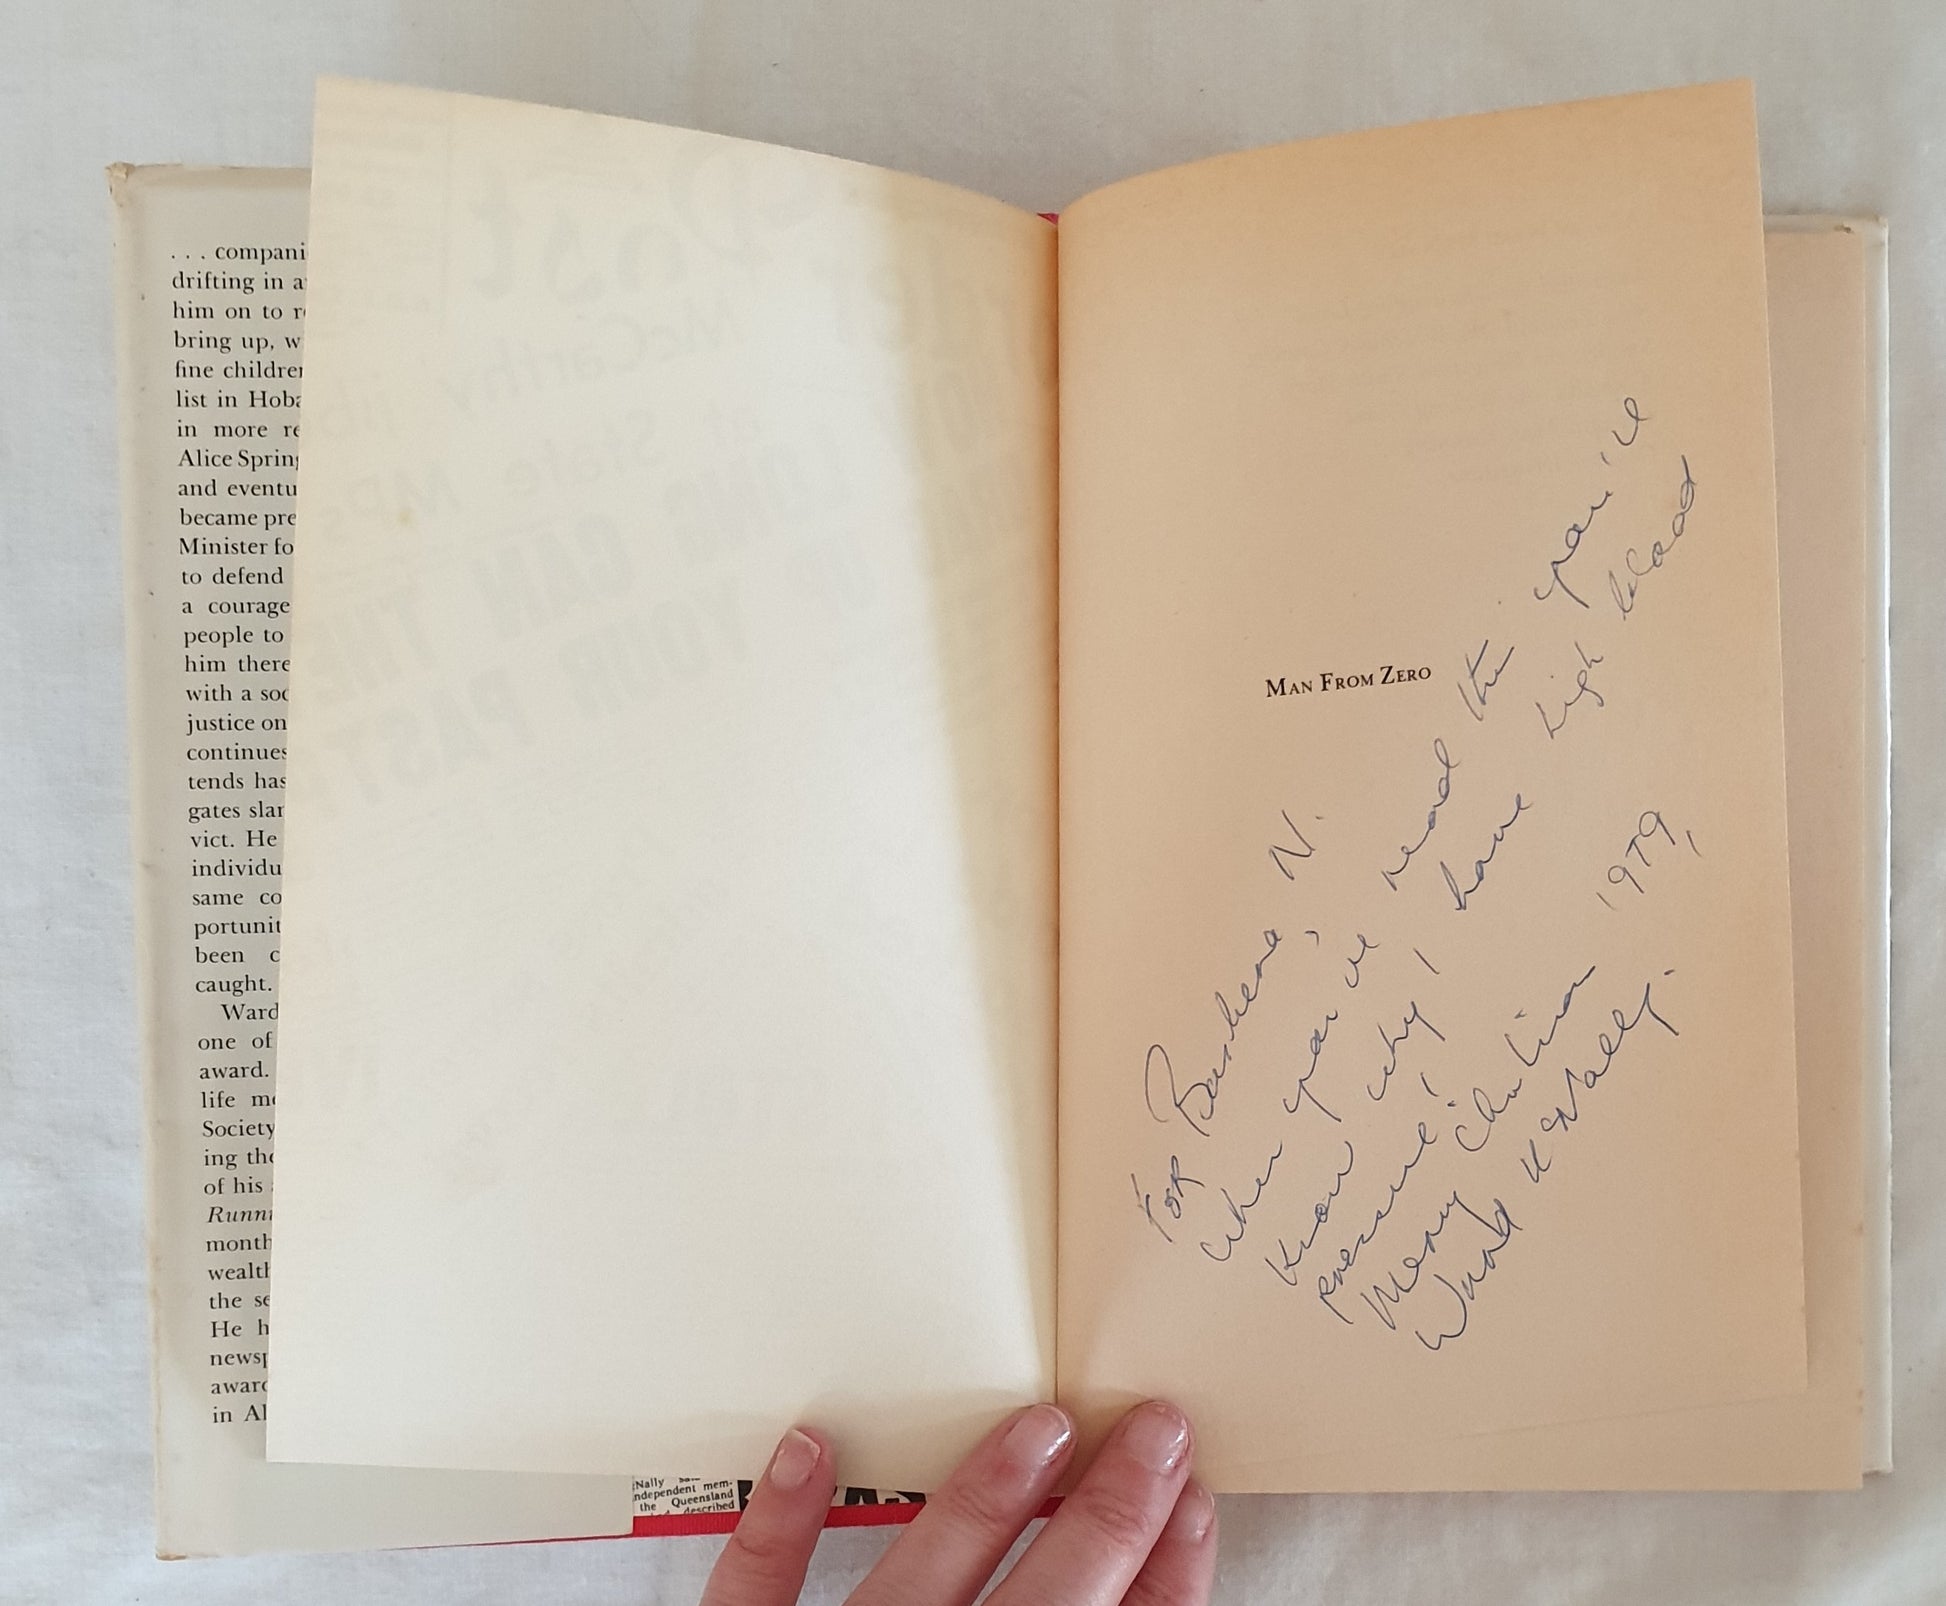 . . . compani
drifting in a
him on to r
bring up, w
fine childre
list in Hoba
in more re
Alice Spring
and eventu
became pre
Minister fo
to defend
a courage
people to
him there
with a soc
justice on
continues
tends has
gates slan
vict. He
individu
same co
portunit
been c
caught.
Ward
one of
award.
life me
Society
ing the
of his
Runni
month
wealth
the se
He h
newsp
award
in Al
Nally
ndependent mem-
the Queensland
described
MAN FROM ZERO
For Barbera N.
When you've read this you'll
know why I have high blood
pressure!
Merry Christmas 1979,
Ward McNally.